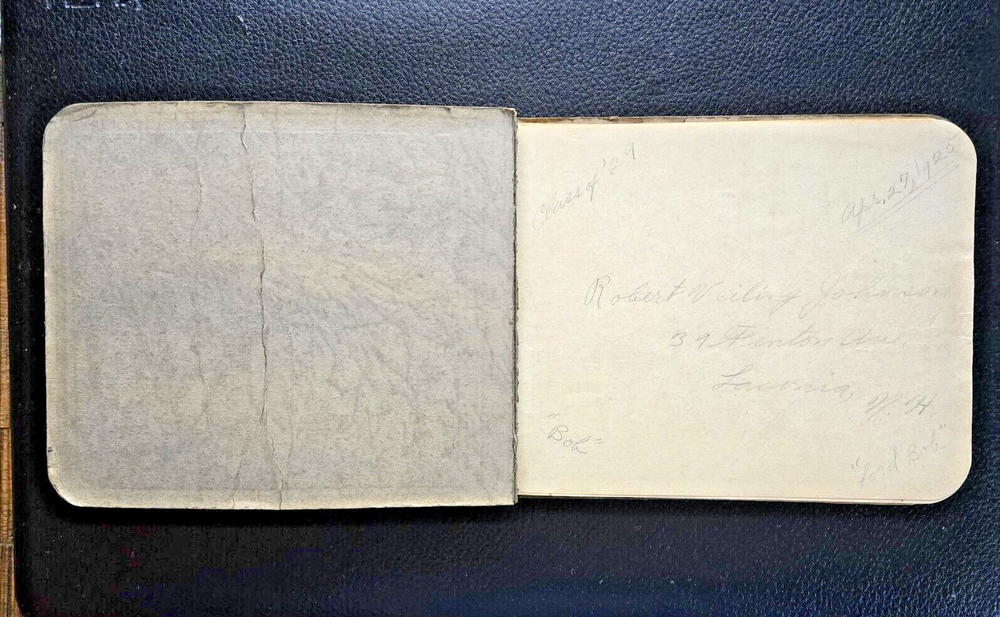 Class of '29
Apr. 27, 1925
Robert Johnson
39 Fenton Ave.
Laconia,
N. H
"Bob"
"Lord Bob"